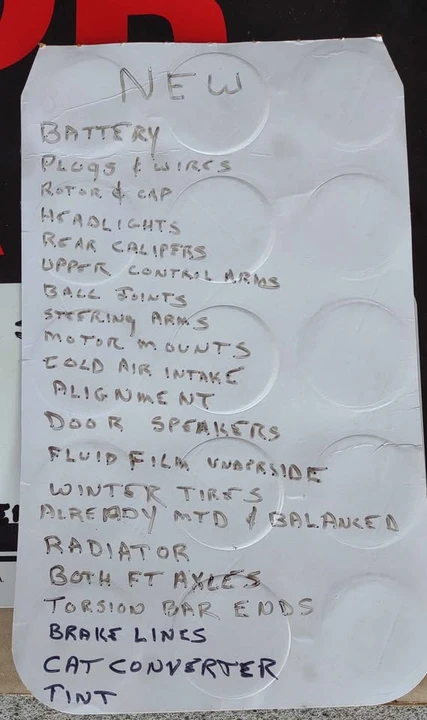 NEW
BATTERY
PLUGS & WIRES
ROTOR & CAP
HEADLIGHTS
REAR CALIPERS
UPPER CONTROL ARMS
BALL JOINTS
STEERING ARMS
MOTOR MOUNTS
COLD AIR INTAKE
ALIGNMENT
DOOR SPEAKERS
FLUID FILM UNDERSIDE
WINTER TIRES
ALREADY MTD & BALANCED
RADIATOR
BOTH FT AXLES
TORSION BAR ENDS
BRAKE LINES
CAT CONVERTER
TINT